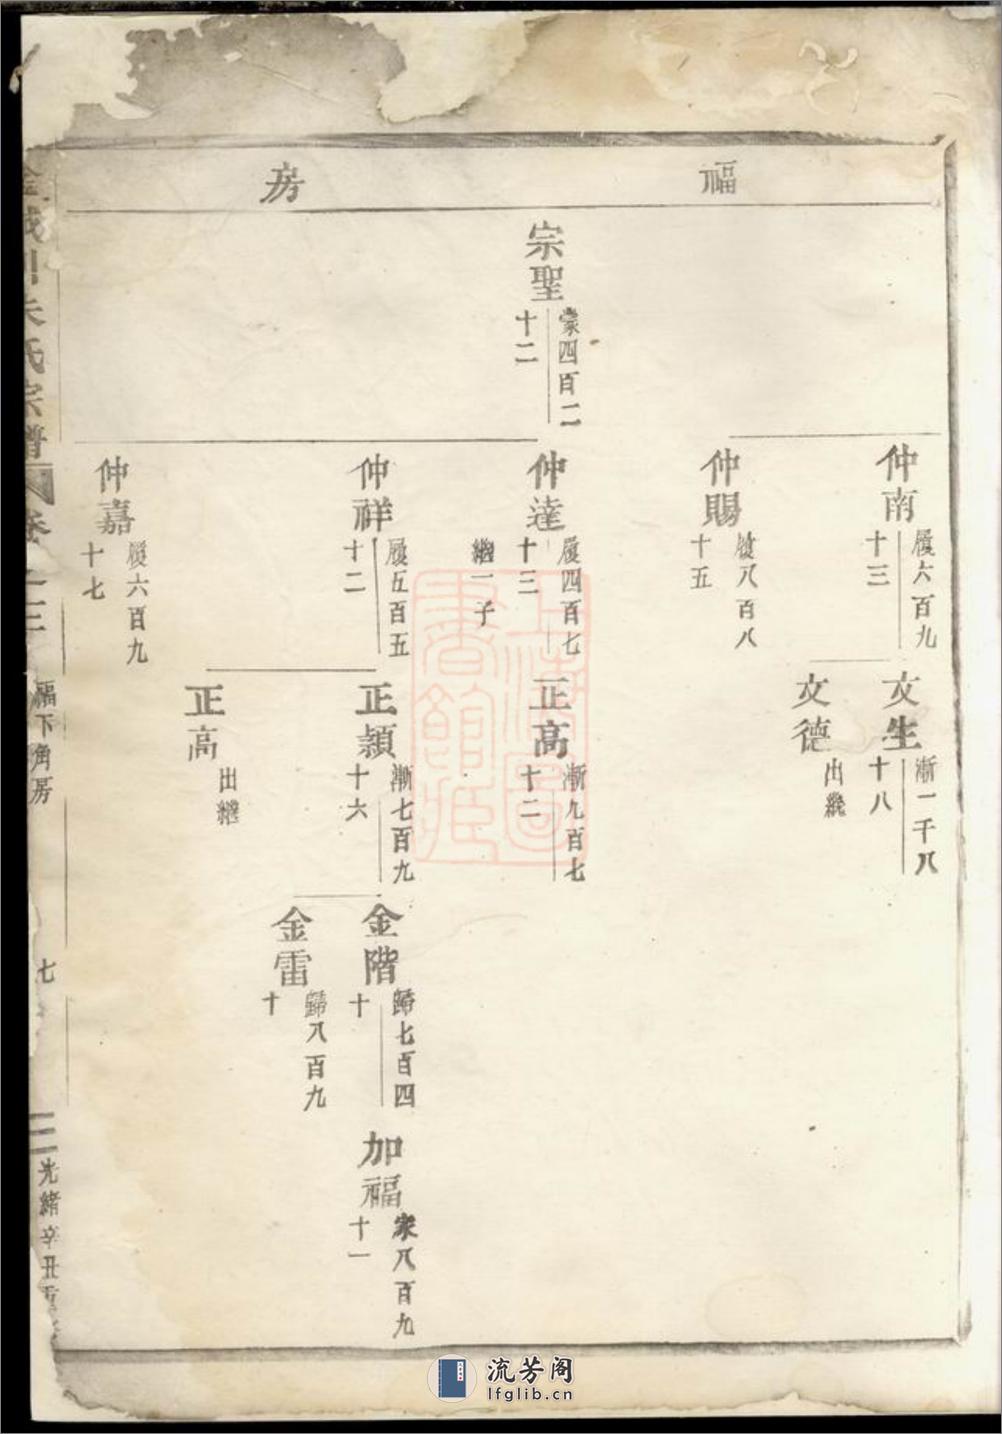 福房
宗聖
蒙四百二
十二
仲南
履六百九
十三
仲賜
履八百八
十五
仲達
履四百七
十三
繼一子
仲祥
履五百五
十二
仲嘉
履六百九
十七
文生
漸一千八
十八
文德
出繼
正高
漸九百七
十二
正頴
漸七百九
十六
正高
出繼
金階
歸七百四
十
金雷
歸八百九
十
加福
家八百九
十一
朱氏宗譜
卷
福下角房
七
光緒辛丑重
上海圖書館藏
流芳阁
lfglib.cn